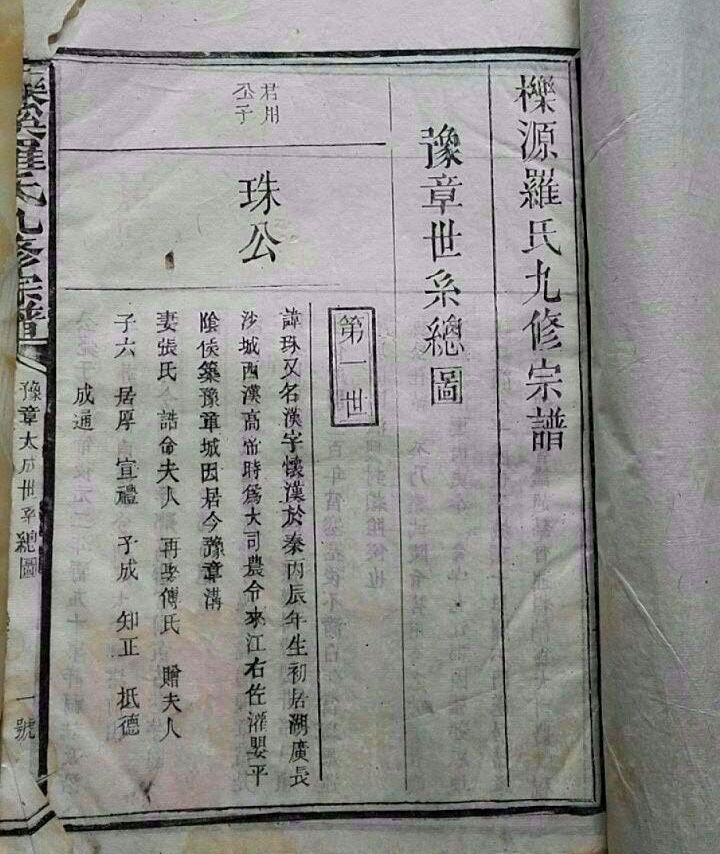 櫟源羅氏九修宗譜
豫章世系總圖
第一世
君用
公子
珠公
諱珠又名漢字懷漢於秦丙辰年生初居湖廣長
沙城西漢高帝時爲大司農令來江右佐灌嬰平
陰侯築豫章城因居今豫章溝
妻張氏 誥命夫人 再娶傅氏 贈夫人
子六 居厚 宣禮 子成 知正 祗德
成通
羅氏九修宗譜
豫章大成世系總圖
一號